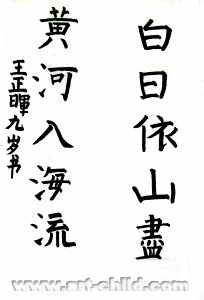 白日依山盡
黄河入海流
王正暉九岁书
www.art-child.com